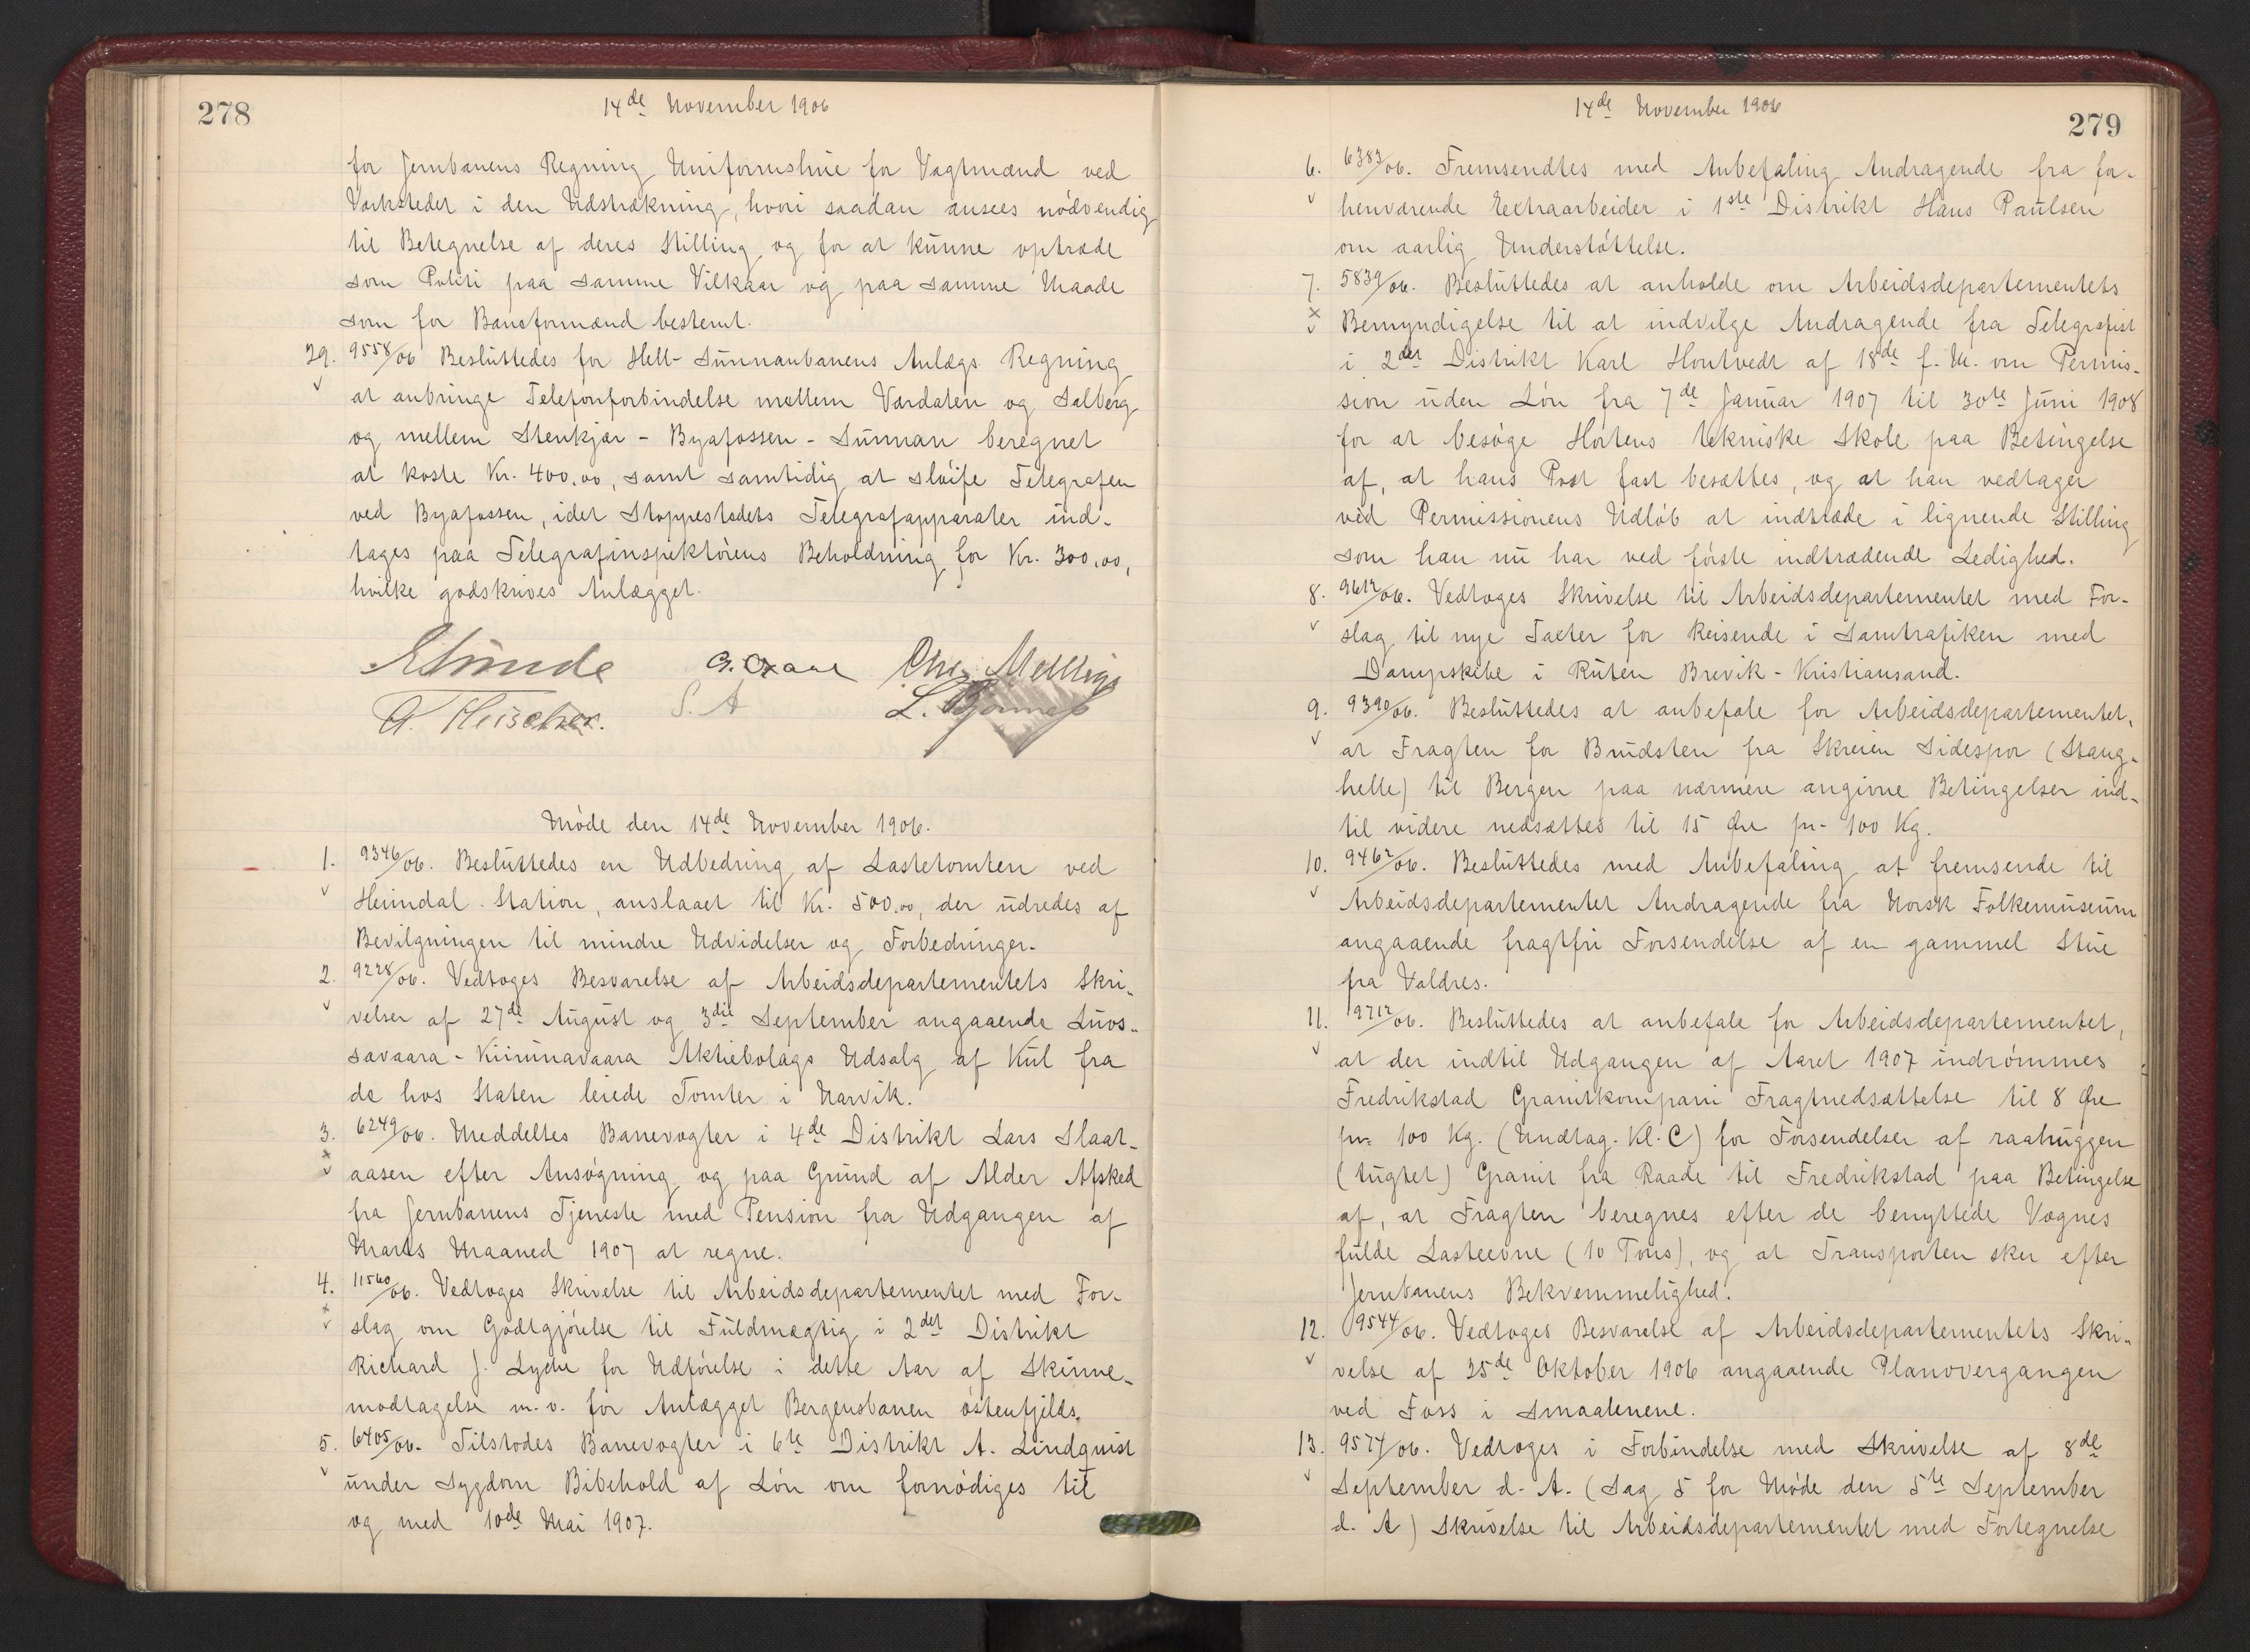 278
14de November 1906
for Jernbanens Regning Uniformshue for Vagtmænd ved
Værksteder i den Udstrækning, hvori saadan ansees nödvendig
til Betegnelse af deres Stilling og for at kunne optræde
som Politi paa samme Vilkaar og paa samme Maade
som for Baneformænd bestemt.
29. 9558/06 Besluttedes for Hell-Sunnanbanens Anlægs Regning
at anbringe Telefonforbindelse mellem Værdalen og Salberg
og mellem Stenkjær - Byafossen - Sunnan beregnet
at koste Kr. 400.00, samt samtidig at slöife Telegrafen
ved Byafossen, idet Stoppestedets Telegrafapparater ind-
tages paa Telegrafinspektörens Beholdning for Kr. 300.00,
hvilke godskrives Anlægget.
Møde den 14de November 1906.
1. 9346/06. Besluttedes en Udbedring af Lastetomten ved
Heimdal Station, anslaaet til Kr. 500.00, der udredes af
Bevilgningen til mindre Udvidelser og Forbedringer.
2. 9228/06. Vedtoges Besvarelse af Arbeidsdepartementets Skri-
velser af 27de August og 3die September angaaende Luos-
savaara-Kiirunavaara Aktiebolags Udsalg af Kul fra
de hos Staten leiede Tomter i Narvik.
3. 6249/06. Meddeltes Banevogter i 4de Distrikt Lars Slaat-
aasen efter Ansøgning og paa Grund af Alder Afsked
fra Jernbanens Tjeneste med Pension fra Udgangen af
Marts Maaned 1907 at regne.
4. 11560/06. Vedtoges Skrivelse til Arbeidsdepartementet med For-
slag om Godtgjörelse til Fuldmægtig i 2det Distrikt
Richard J. Lyche for Udförelse i dette Aar af Skinne-
modtagelse m.v. for Anlægget Bergensbanen östenfjelds.
5. 6405/06. Tilstodes Banevogter i 6te Distrikt A. Lindquist
under Sygdom Bibehold af Lön om fornödiges til
og med 10de Mai 1907.
14de November 1906
279
6. 6383/06. Fremsendtes med Anbefaling Andragende fra for-
henværende Extraarbeider i 1ste Distrikt Hans Paulsen
om aarlig Understöttelse.
7. 5839/06. Besluttedes at anholde om Arbeidsdepartementets
Bemyndigelse til at indvilge Andragende fra Telegrafist
i 2det Distrikt Karl Hontvedt af 18de f. M. om Permis-
sion uden Lön fra 7de Januar 1907 til 30te Juni 1908
for at besöge Hortens tekniske Skole paa Betingelse
af, at hans Post fast besættes, og at han vedtager
ved Permissionens Udlöb at indtræde i lignende Stilling
som han nu har ved förste indtrædende Ledighed.
8. 9612/06. Vedtoges Skrivelse til Arbeidsdepartementet med For-
slag til nye Taxter for Reisende i Samtrafiken med
Dampskibe i Ruten Brevik-Kristiansand.
9. 9390/06. Besluttedes at anbefale for Arbeidsdepartementet,
at Fragten for Brudsten fra Skreien Sidespor (Stang-
helle) til Bergen paa nærmere angivne Betingelser ind-
til videre nedsættes til 15 Øre pr. 100 Kg.
10. 9462/06. Besluttedes med Anbefaling at fremsende til
Arbeidsdepartementet Andragende fra Norsk Folkemuseum
angaaende fragtfri Forsendelse af en gammel Stue
fra Valdres.
11. 9712/06. Besluttedes at anbefale for Arbeidsdepartementet,
at der indtil Udgangen af Aaret 1907 indrömmes
Fredrikstad Granitkompani Fragtnedsættelse til 8 Øre
pr. 100 Kg. (Undtag. Kl. C) for Forsendelser af raahuggen
(tugtet) Granit fra Raade til Fredrikstad paa Betingelse
af, at Fragten beregnes efter de benyttede Vognes
fulde Lasteevne (10 Tons), og at Transporten sker efter
Jernbanens Bekvemmelighed.
12. 9544/06. Vedtoges Besvarelse af Arbeidsdepartementets Skri-
velse af 25de Oktober 1906 angaaende Planovergangen
ved Foss i Smaalenene.
13. 9574/06. Vedtoges i Forbindelse med Skrivelse af 8de
September d. A. (Sag 5 for Møde den 5te September
d. A) Skrivelse til Arbeidsdepartementet med Fortegnelse